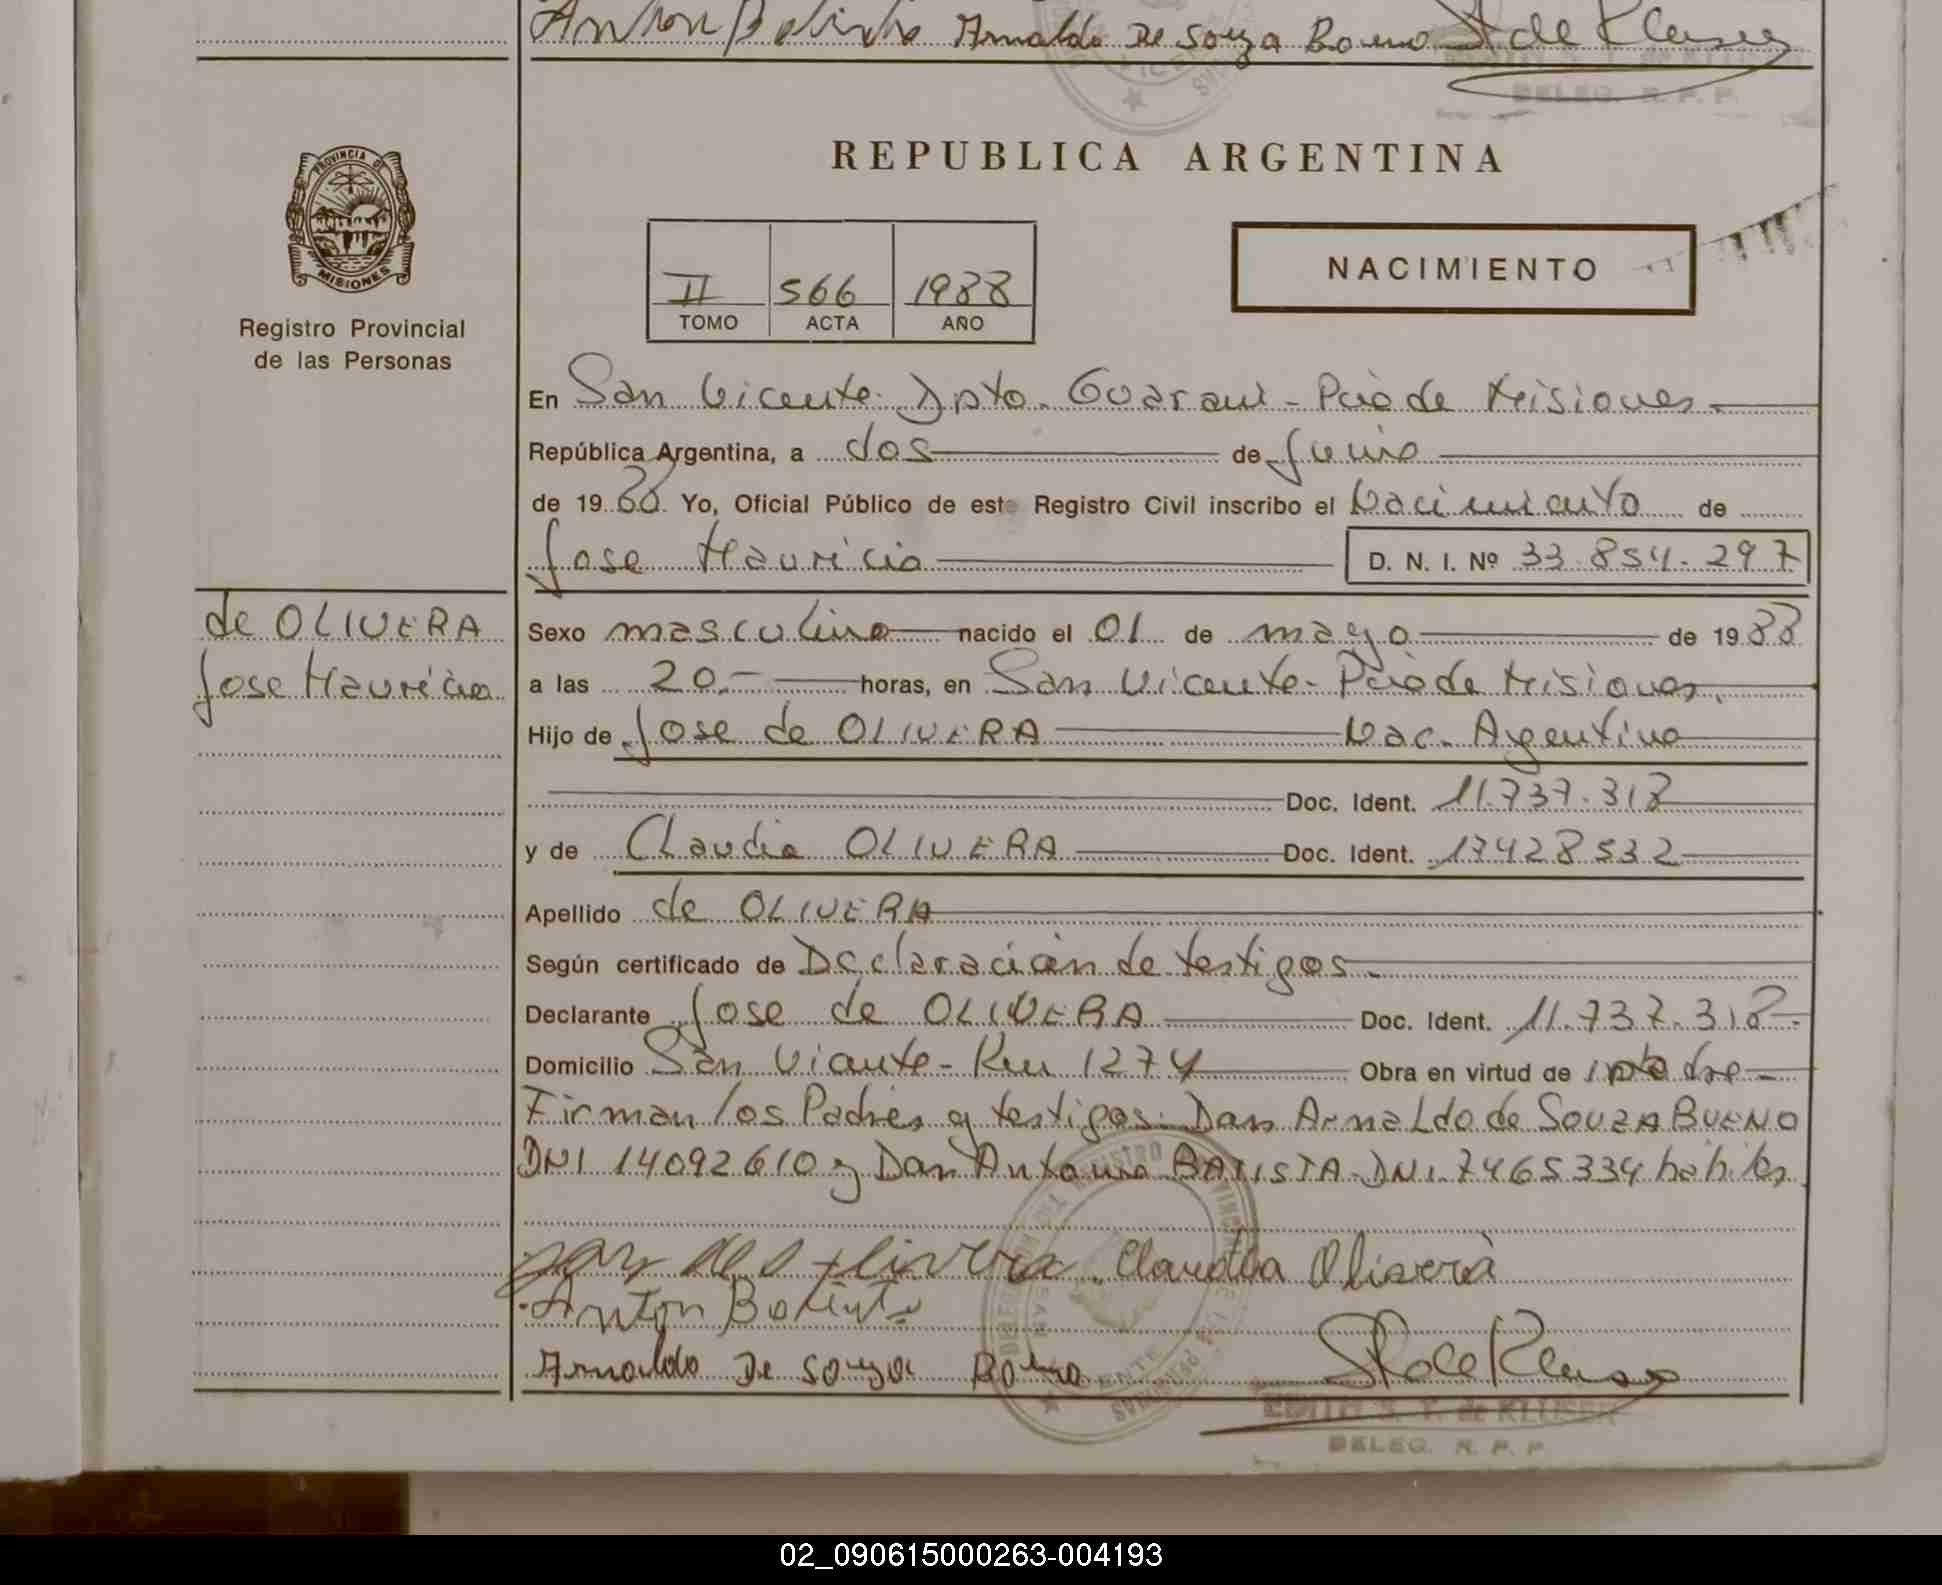 Arnaldo De Souza Bueno
DELEG. R. P. P.
REPUBLICA ARGENTINA
PROVINCIA DE
MISIONES
Registro Provincial
de las Personas
II 566 1988
TOMO ACTA AÑO
NACIMIENTO
En San Vicente Dpto. Guarani - Pcia de Misiones
República Argentina, a dos de Junio
de 1988 Yo, Oficial Público de este Registro Civil inscribo el Nacimiento de
Jose Mauricio D. N. I. Nº 33.854.297
de OLIVERA
Jose Mauricio
Sexo masculino nacido el 01 de mayo de 1988
a las 20.- horas, en San Vicente - Pcia de Misiones.
Hijo de Jose de OLIVERA Nac. Argentino
Doc. Ident. 11.737.318
y de Claudia OLIVERA Doc. Ident. 17428532
Apellido de OLIVERA
Según certificado de Declaración de testigos.
Declarante Jose de OLIVERA Doc. Ident. 11.737.318
Domicilio San Vicente - Km 1274 Obra en virtud de padre
Firman los Padres y testigos: Don Arnaldo de SOUZA BUENO
DNI 14092610 y Don Antonio BATISTA - DNI. 7465334 habiles
Claudia Olivera
Anton
Arnaldo De Souza
EDITH S. T. de KLUSER
DELEG. R. P. P.
02_090615000263-004193